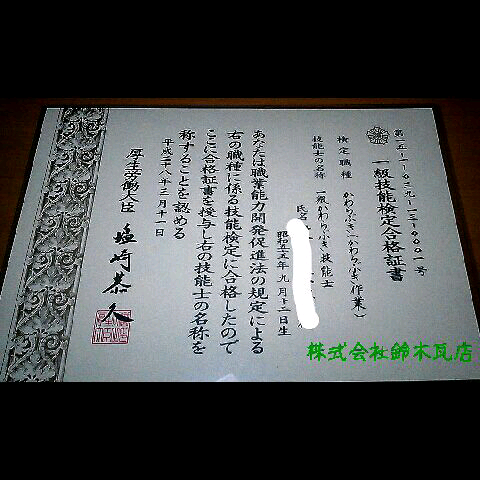 第一五-一-〇二九-一三-〇〇〇一号
一級技能検定合格証書
検定職種 かわらぶき(かわらぶき作業)
技能士の名称 一級かわらぶき技能士
氏名
昭和五十五年九月十二日生
あなたは職業能力開発促進法の規定による
右の職種に係る技能検定に合格したので
ここに合格証書を授与し右の技能士の名称を
称することを認める
平成二十八年三月十一日
厚生労働大臣 塩崎恭久
株式会社鈴木瓦店